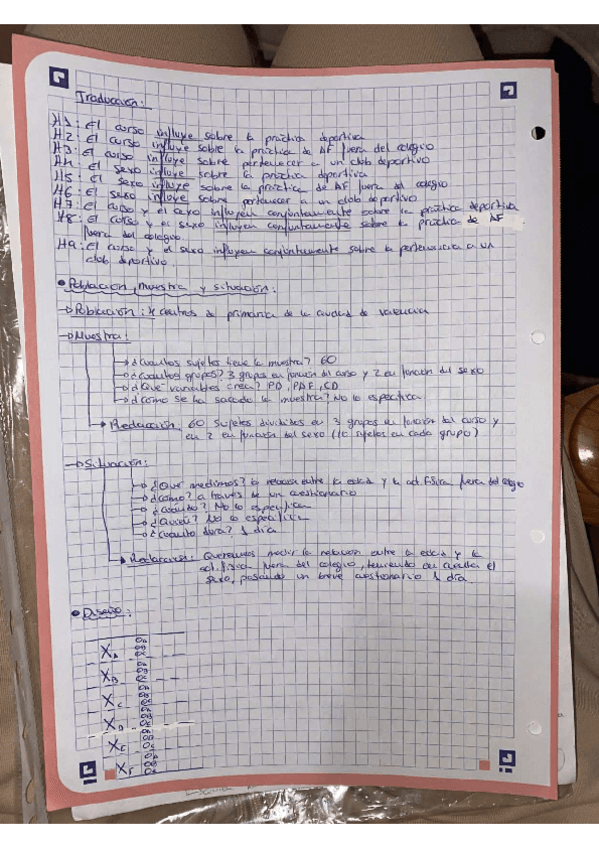 Traducción:
H1: El curso influye sobre la práctica deportiva
H2: El curso influye sobre la práctica de AF fuera del colegio
H3: El curso influye sobre pertenecer a un club deportivo
H4: El sexo influye sobre la práctica deportiva
H5: El sexo influye sobre la práctica de AF fuera del colegio
H6: El sexo influye sobre pertenecer a un club deportivo
H7: El curso y el sexo influyen conjuntamente sobre la práctica deportiva
H8: El curso y el sexo influyen conjuntamente sobre la práctica de AF
fuera del colegio
H9: El curso y el sexo influyen conjuntamente sobre la pertenencia a un
club deportivo
Población, muestra y situación:
Población: 4 centros de primaria de la ciudad de Valencia
Muestra:
¿Cuántos sujetos tiene la muestra? 60
¿Cuántos grupos? 3 grupos en función del curso y 2 en función del sexo
¿Qué variables crea? PD, PAF, CD
¿Cómo se ha sacado la muestra? No lo especifica
Redacción: 60 sujetos divididos en 3 grupos en función del curso y
en 2 en función del sexo (10 sujetos en cada grupo)
Situación:
¿Qué medimos? la relación entre la edad y la act. física fuera del colegio
¿Cómo? a través de un cuestionario
¿Cuándo? No lo especifica
¿Quién? No lo especifica
¿Cuánto dura? 1 día
Redacción: Queremos medir la relación entre la edad y la
act. física fuera del colegio, teniendo en cuenta el
sexo, pasando un breve cuestionario 1 día.
Diseño:
XA OA
OB
OC
XB OA
OB
OC
XC OA
OB
OC
XD OA
OB
OC
XE OA
OB
OC
XF OA
OB
OC